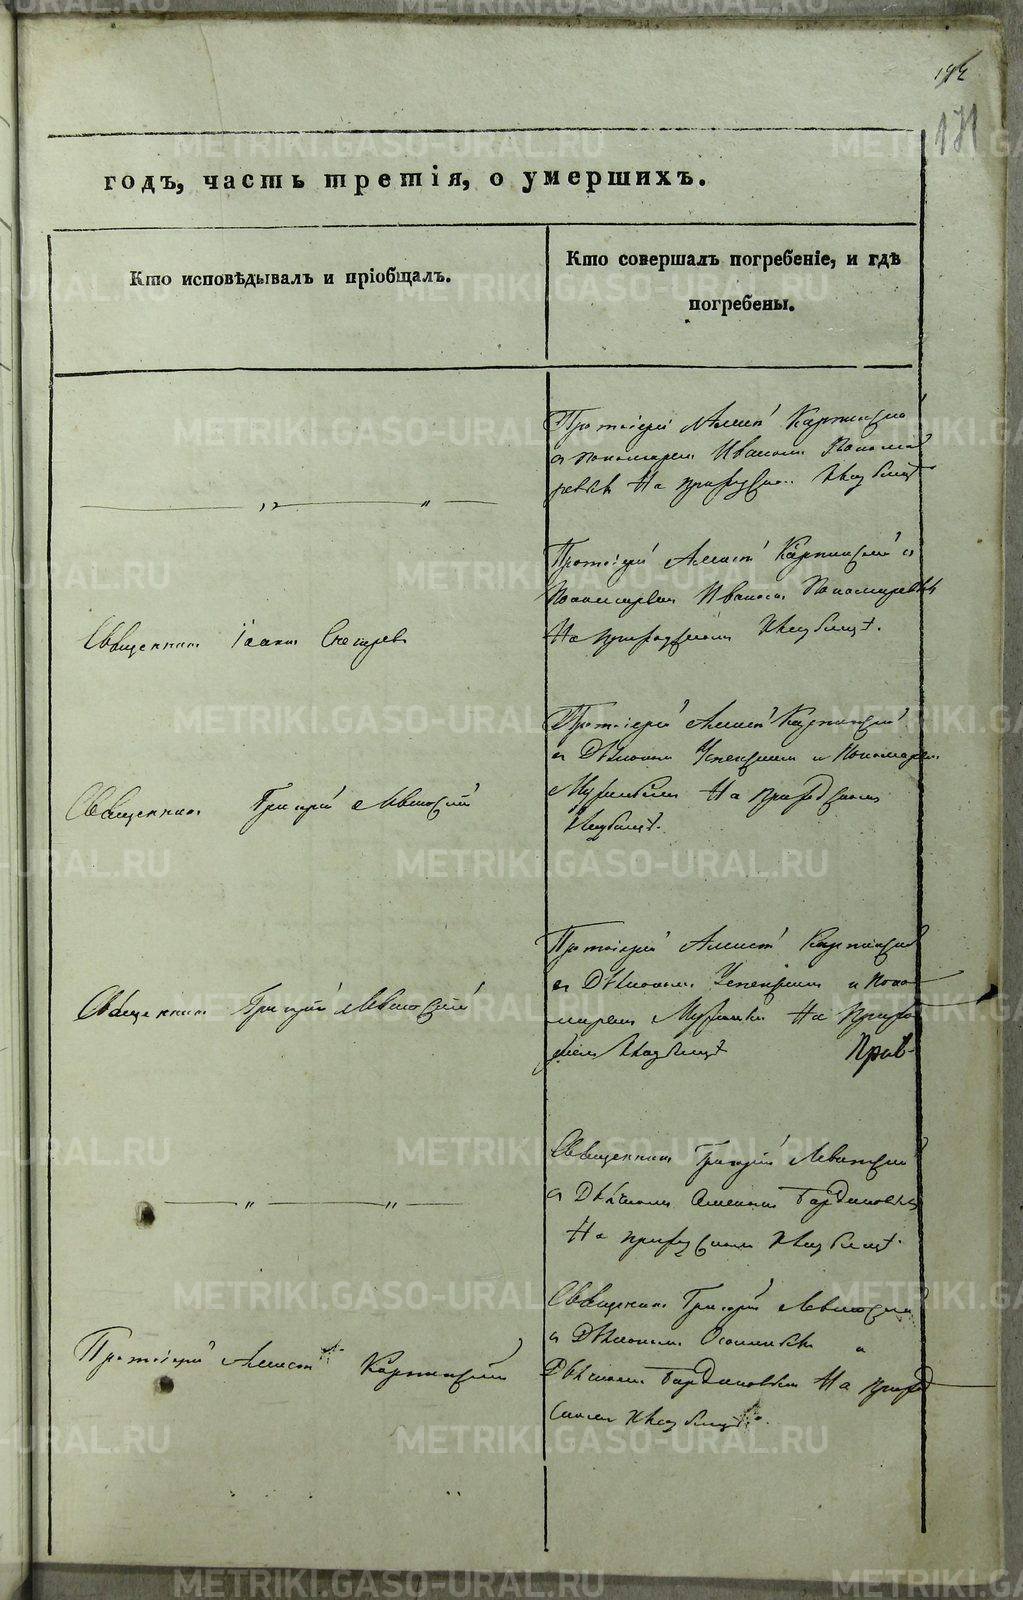 171
годъ, часть третія, о умершихъ.
Кто исповѣдывалъ и пріобщалъ.
Кто совершалъ погребеніе, и гдѣ
погребены.
Протоіерей Алексѣй Карпинскій
съ пономаремъ Иваномъ Понома
ревымъ На приходскомъ Кладбищѣ
— „ — „ —
Протоіерей Алексѣй Карпинскій съ
Пономаремъ Иваномъ Пономаревымъ
На приходскомъ Кладбищѣ.
Священникъ Іоаннъ
Протоіерей Алексѣй Карпинскій
съ Дьякономъ Успенскимъ и Пономаремъ
На приходскомъ
Кладбищѣ.
Священникъ Григорій Левитскій
Протоіерей Алексѣй Карпинскій
съ Дьякономъ Успенскимъ и Поно
маремъ На Прихо
дскомъ Кладбищѣ
Священникъ Григорій Левитскій
Священникъ Григорій Левитскій
съ
На приходскомъ Кладбищѣ.
— „ — „ —
Священникъ Григорій Левитскій
съ Дьякономъ и
На приход
скомъ Кладбищѣ.
Протоіерей Алексѣй Карпинскій
METRIKI.GASO-URAL.RU